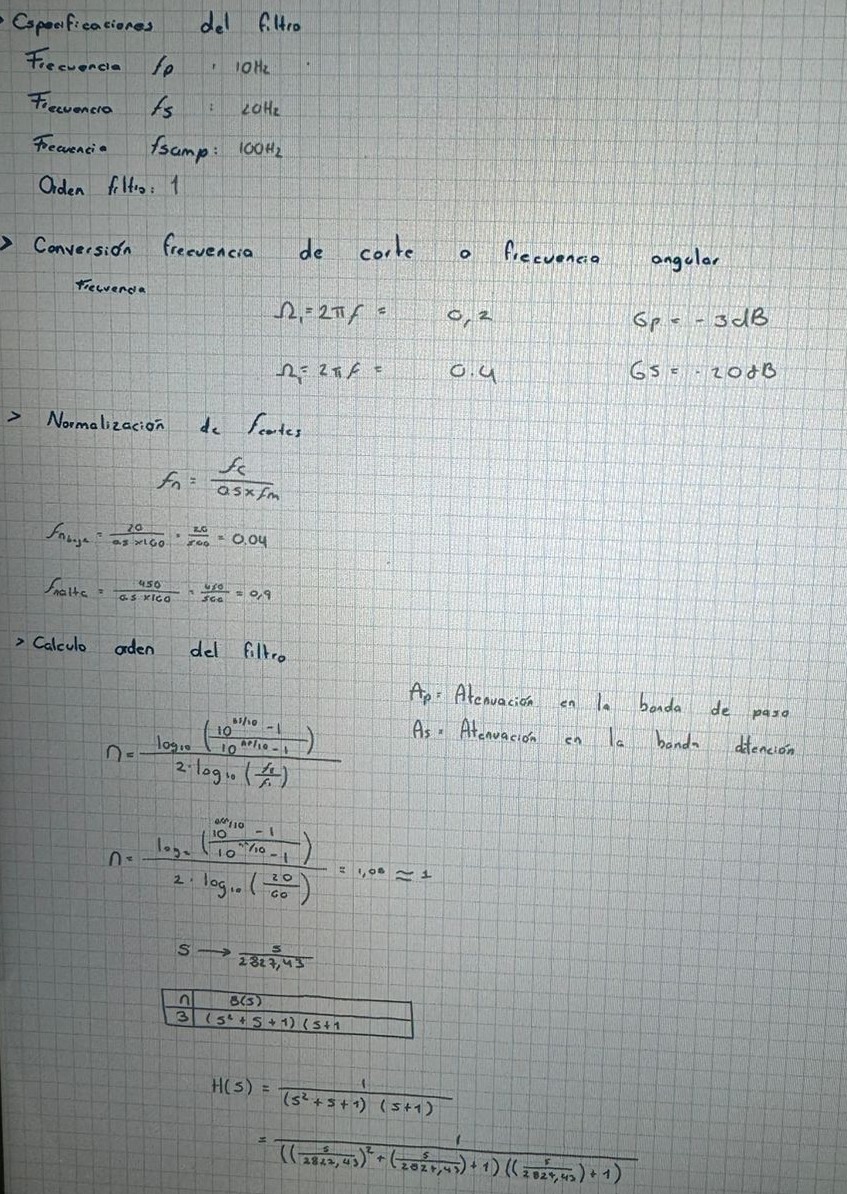 Especificaciones del filtro
Frecuencia fp : 10Hz
Frecuencia fs : 20Hz
Frecuencia fsamp: 100Hz
Orden filtro: 1
> Conversión frecuencia de corte o frecuencia angular
Frecuencia
Ω₁ = 2πf = 0,2 Gp = -3dB
Ω₁ = 2πf = 0.4 Gs = -20dB
> Normalización de fcortes
fn = fc / 0.5xfm
fnbaja = 20 / 0.5x100 = 20/500 = 0.04
fnalta = 450 / 0.5 x100 = 450/500 = 0,9
> Calculo orden del filtro
Ap = Atenuación en la banda de paso
As = Atenuación en la banda ditención
n = log₁₀ ( (10^As/10 - 1) / (10^Ap/10 - 1) ) / 2·log₁₀ ( )
n = log ( (10 - 1) / (10 - 1) ) / 2·log₁₀ ( 20/60 ) = 1,08 ≈ 1
S → s / 2827,43
n B(s)
3 (s² + s + 1) (s+1
H(s) = 1 / (s² + s + 1) (s+1)
= 1 / (( s/2827,43 )² + ( s/2827,43 ) + 1) (( s/2827,43 ) + 1)